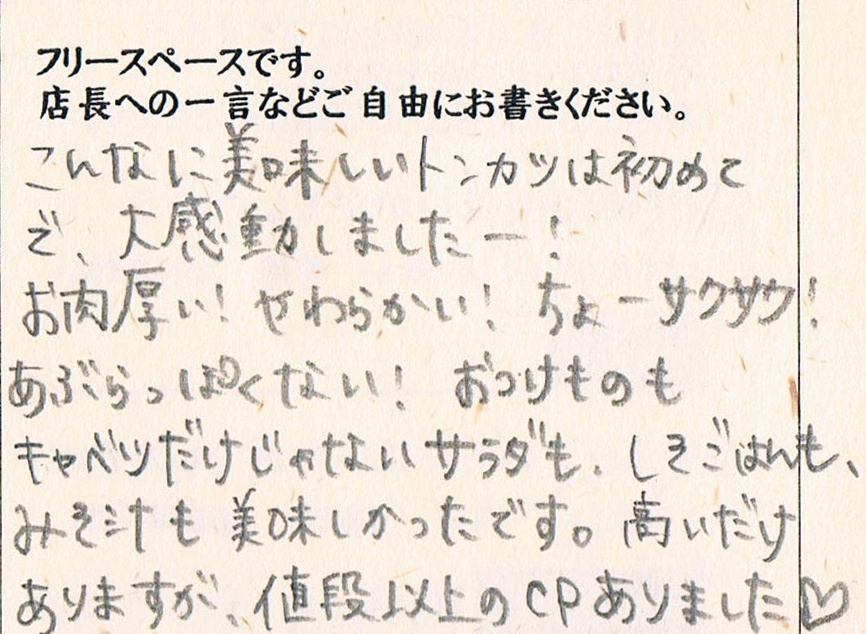 フリースペースです。
店長への一言などご自由にお書きください。
こんなに美味しいトンカツは初めて
で、大感動しましたー！
お肉厚い！やわらかい！ちょーサクサク！
あぶらっぽくない！おつけものも
キャベツだけじゃないサラダも、しそごはんも、
みそ汁も美味しかったです。高いだけ
ありますが、値段以上のCPありました♡